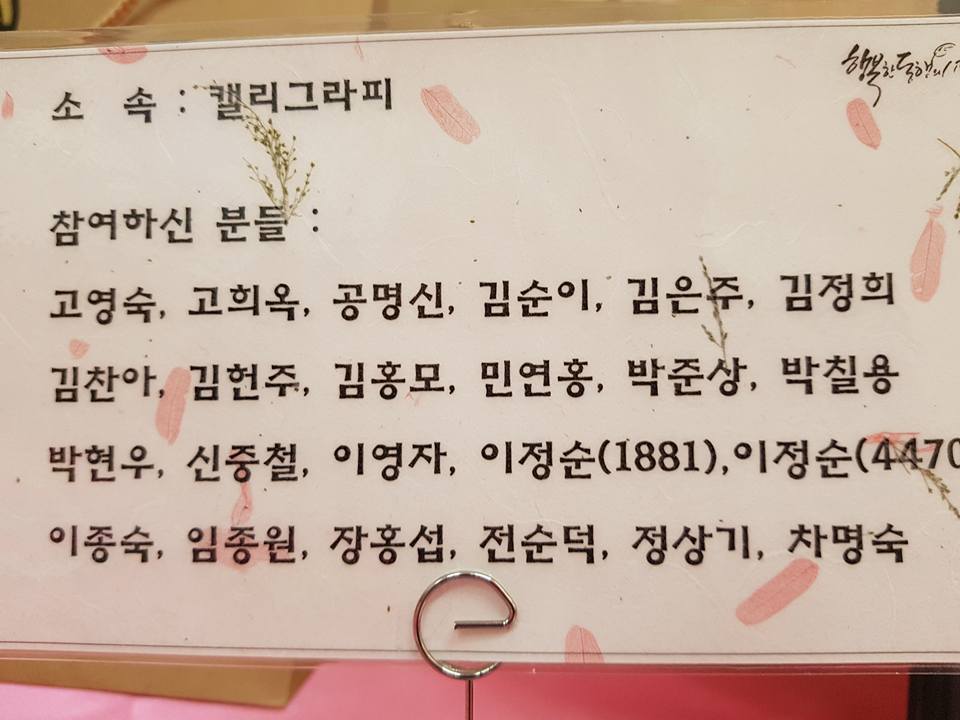 행복한동행의
소 속 : 캘리그라피
참여하신 분들 :
고영숙, 고희옥, 공명신, 김순이, 김은주, 김정희
김찬아, 김헌주, 김홍모, 민연홍, 박준상, 박칠용
박현우, 신중철, 이영자, 이정순(1881),이정순(4470
이종숙, 임종원, 장홍섭, 전순덕, 정상기, 차명숙